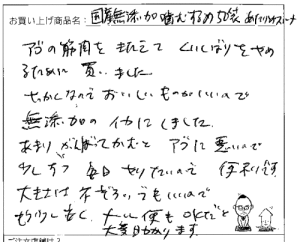 お買い上げ商品名: 国産無添加噛むするめ50袋
アゴの筋肉をきたえて くいしばりをやめ
るために 買いました
せっかくなので おいしいものがいいので
無添加のイカにしました。
あまり がんばってかむと アゴに悪いので
少しずつ 毎日 やりたいので 便利です
大きさは 不ぞろいでもいいので
もう少し安く、メール便もOKだと
大変助かります